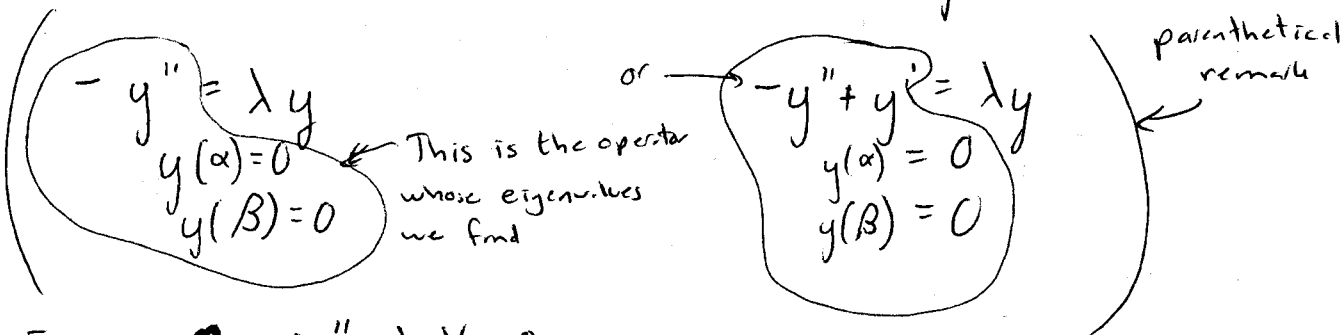 - y" = λ y
y(α) = 0
y(β) = 0
This is the operator
whose eigenvalues
we find
or
-y" + y' = λy
y(α) = 0
y(β) = 0
parenthetical
remark